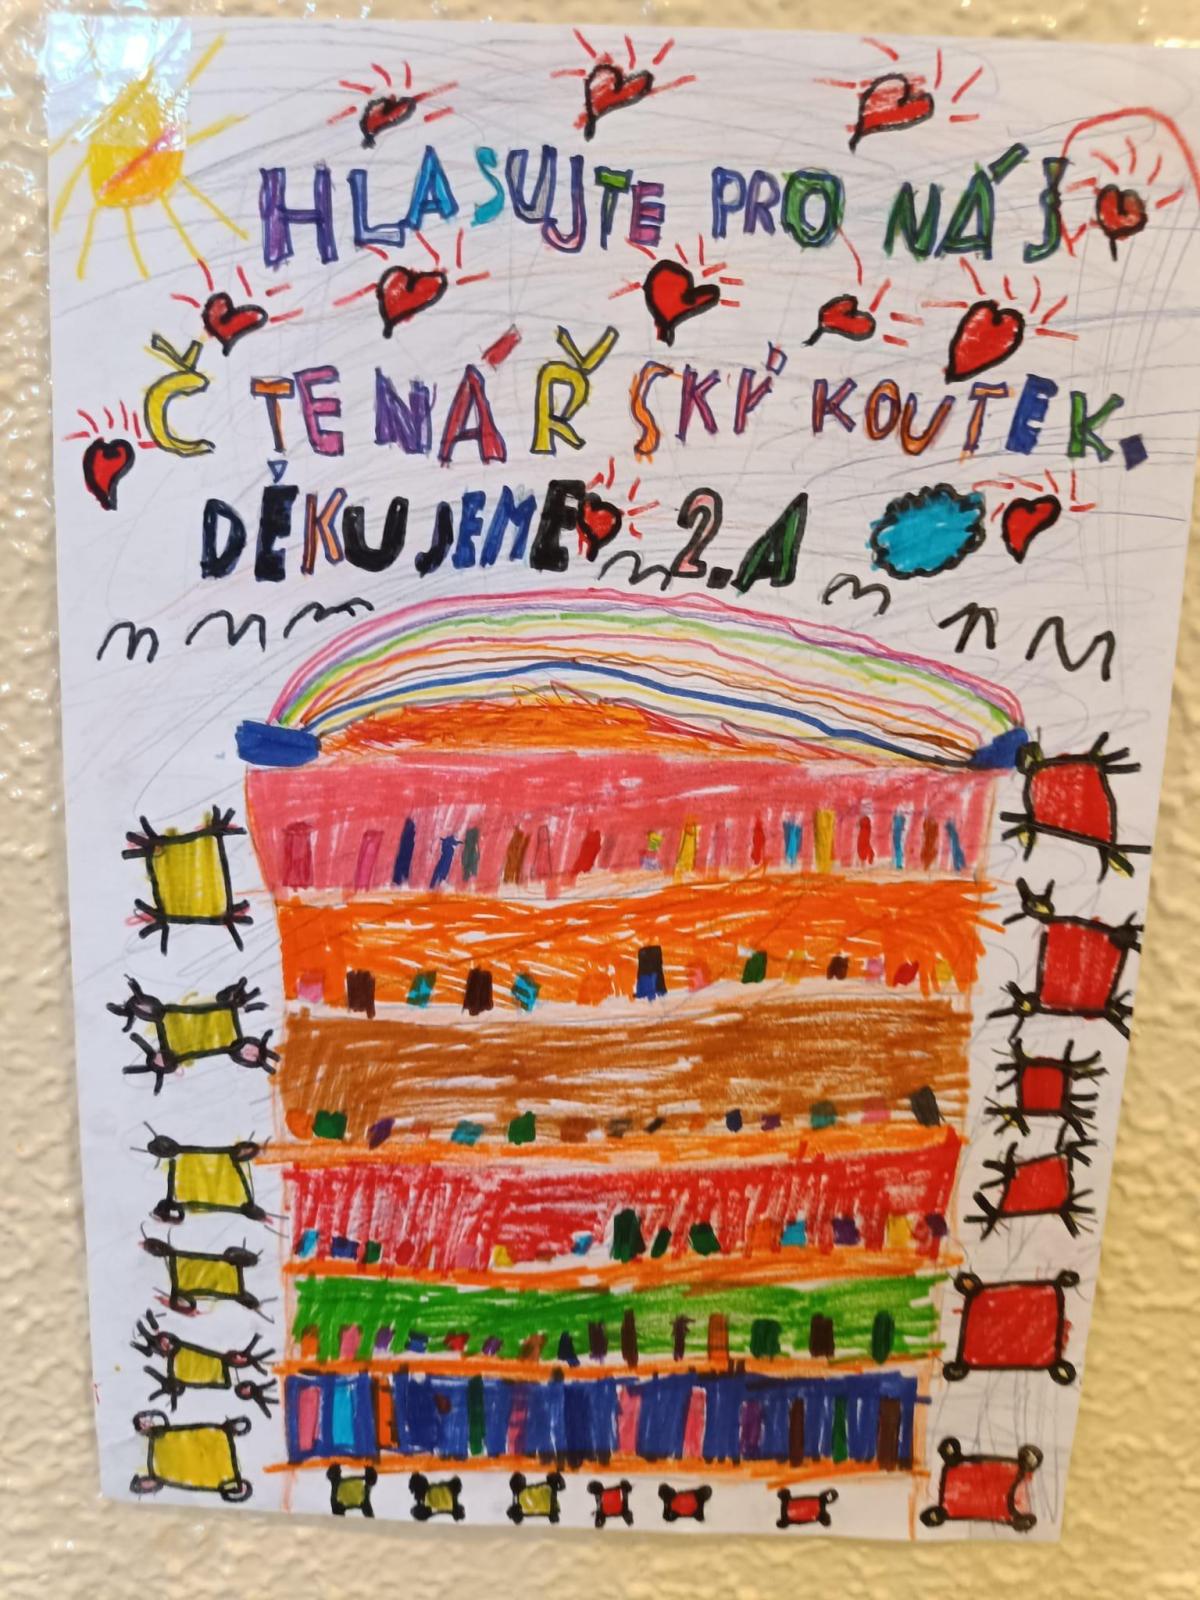 HLASUJTE PRO NÁŠ
ČTENÁŘSKÝ KOUTEK.
DĚKUJEME 2.A